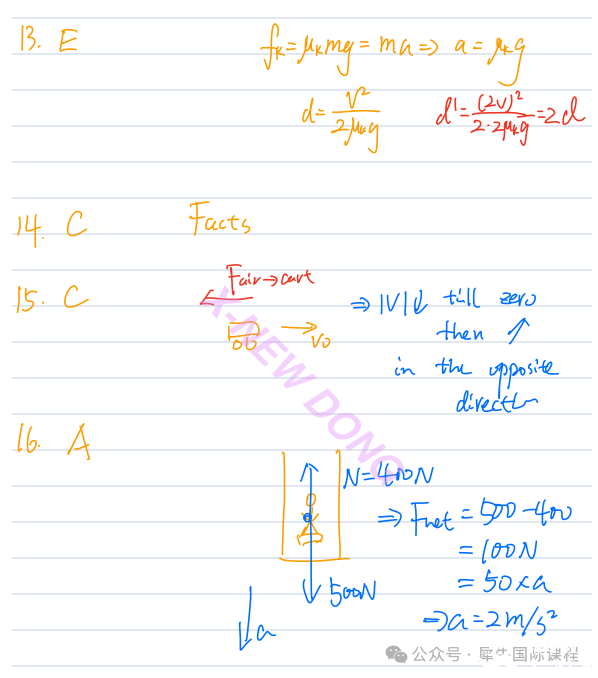 13. E
fₖ = μₖmg = ma ⇒ a = μₖg
d = V²/2μₖg
d' = (2V)²/2·2μₖg = 2d
14. C
Facts
15. C
Fair→cart
V₀
⇒ |V|↓ till zero
then ↗
in the opposite
direction
X-NEW DONG
16. A
N=400N
500N
a
⇒ Fnet = 500-400
= 100N
= 50×a
⇒ a = 2m/s²
公众号·犀牛国际课程